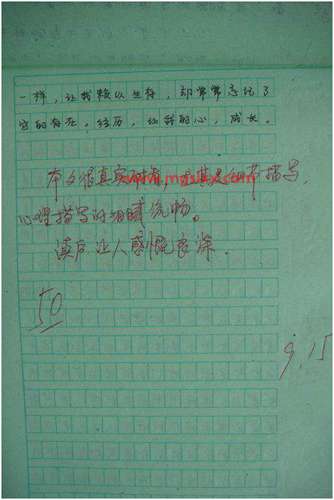 一样，让我赖以生存，却常常忘记了
它的存在。经历，让我的心，成长。
本文很真实，尤其是细节描写，
心理描写的细腻流畅。
读后让人感慨良深。
50
9.15